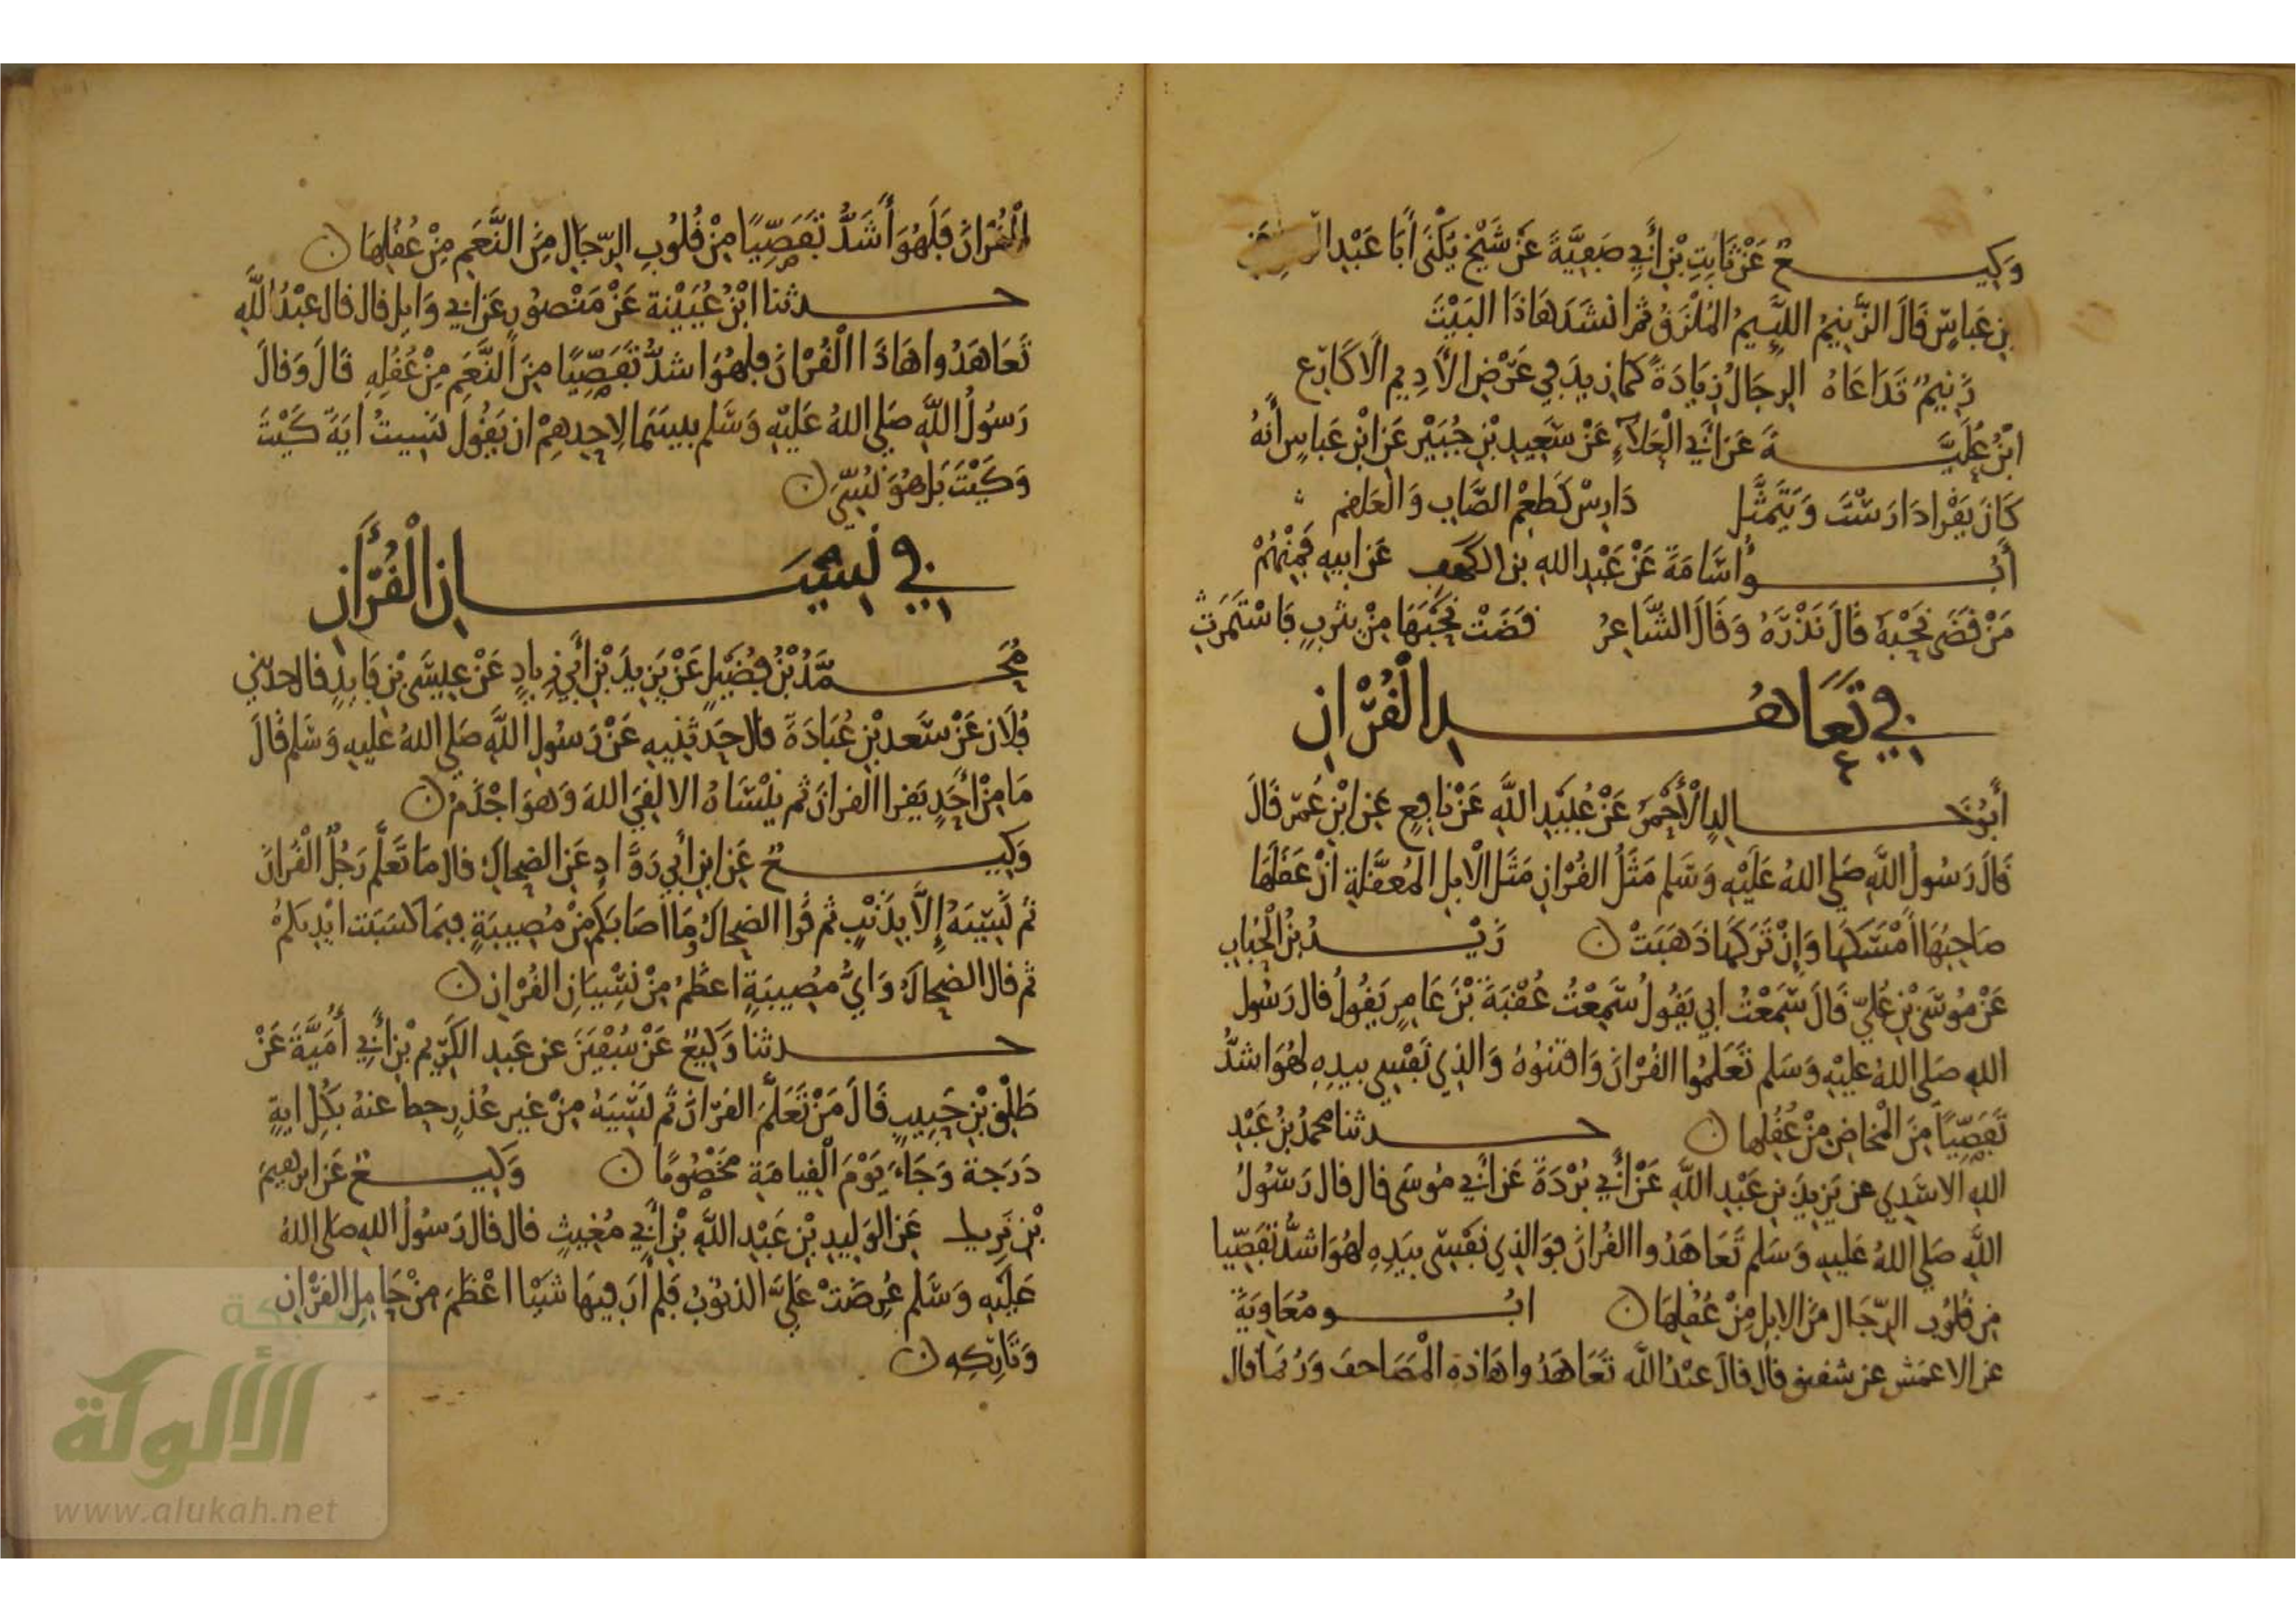 وَكِيـــعٌ عَنْ ثَابِتِ بْنِ أَبِي صَفِيَّةَ عَنْ شَيْخٍ يُكْنَى أَبَا عَبْدِ الرحمن عَنِ
ابنِ عَبَاسٍ قَالَ الزَّنِيمُ اللَّئِيمُ المُلْزَقُ ثم انشَدَ هَاذَا البَيْتَ
زَنِيمٌ تَدَاعَاهُ الرِجَالُ زِيَادَةً كما زِيدَ فِي عَرْضِ الأَدِيمِ الأَكَارِعُ
ابْنُ عُلَيَّـــةَ عَنْ أَبِي الْعَلَاءِ عَنْ سَعِيدِ بْنِ جُبَيْرٍ عَنِ ابْنِ عَبَاسٍ أَنهُ
كَانَ يَقْرَا دَارَسْتَ وَيَتَمَثَّل دَارِسٌ كَطَعْمِ الصَّابِ وَالْعَلْقم
أَبُـــو أُسَامَةَ عَنْ عَبْدِ اللهِ بن عَنْ ابيهِ فَمِنْهُمْ
مَنْ قَضَى نَحْبَهُ قَالَ نَذْرَهُ وَقَالَ الشَّاعِرُ قَضَتْ نَحْبَهَا مِنْ يثْرِبٍ فَاسْتَمَرَّتِ
فِي تَعَاهُـــدِ الْقُرْآنِ
أَبُو خَـــالِدٍ الأَحْمَرُ عَنْ عُبَيْدِ اللَّهِ عَنْ نافِعٍ عَنِ ابْنِ عُمَرَ قَالَ
قَالَ رَسُولُ اللَّهِ صَلى اللهُ عَلَيْهِ وَسَلم مَثَلُ القُرْانِ مَثَلُ الْابِلِ المُعقَّلَةِ انْ عَقَلَهَا
صَاحِبُهَا أَمْسَكَهَا وَإِنْ تَرَكَهَا ذَهَبَتْ ن زَيْـــدُ بْنُ الْحُبَابِ
عَنْ مُوسَى بْنِ عُلَيٍّ قَالَ سَمِعْتُ ابِي يَقُولُ سَمِعْتُ عُقْبَةَ بْنَ عَامِرٍ يَقُولُ قال رَسُولُ
اللهِ صَلى اللهُ عليْهِ وَسَلم تَعَلمُوا القُرْانَ وَاقْتنُوهُ وَالذِي نَفْسِي بيدِهِ لهُوَ اشدُّ
تَفَصِّيًا مِنَ الْمخاضِ مِنْ عُقُلِها ن حـــدثنا محمدُ بْنُ عَبْدِ
اللهِ الاسَدِي عن يَزِيدَ بنِ عَبْدِ اللَّهِ عَنْ أَبِي بُرْدَةَ عَنْ أَبِي مُوسَى قال قال رَسُولُ
اللَّهِ صَلى اللهُ عَليهِ وَسَلم تَعَاهَدُوا القُرانَ فوَالذِي نَفْسِي بيَدِهِ لهُوَ اشدُّ تَفَصِّيا
مِن قُلوُبِ الرِّجَال مِنَ الابِلِ مِنْ عُقُلِهَا ن ابُـــو مُعَاوِيَةَ
عن الاعمَشِ عن شقيق قال قالَ عبْدُ اللَّهِ تَعَاهَدُوا هَاذِهِ الْمَصَاحفَ وَرُبمَا قال
الْقُرْانَ فَلَهُوَ أَشَدُّ تَفَصِّيًا مِنْ قُلُوبِ الرِّجَالِ مِنَ النَّعَمِ مِنْ عُقُلِهَا ن
حـــدثنا ابْنُ عُيَيْنة عَنْ مَنْصُورٍ عَنْ ابِي وَايِلٍ قال قال عبْدُ اللَّهِ
تَعَاهَدُوا هَاذَا الْقُرْانَ فلهُوَ اشدُّ تَفَصِّيًا مِنَ النَّعَمِ مِنْ عُقُلِهِ قَالَ وَقالَ
رَسُولُ اللَّهِ صَلى اللهُ عَليْهِ وَسَلم بيسَمَا لاحِدِهِمْ ان يَقُولَ نَسِيتُ ايَةَ كَيْتَ
وَكَيْتَ بَل هُوَ نُسِّيَ ن
فِي نِسْيَـــانِ الْقُرْآنِ
مُحَـــمَّدُ بْنُ فُضَيْلٍ عَنْ يَزِيدَ بْنِ أَبِي زِيادٍ عَنْ عِيسَى بْنِ فَايِدٍ قال حدثني
فُلَان عَنْ سَعد بْنِ عُبَادَةَ قال حَدثنِيهِ عَنْ رَسُولِ اللَّهِ صَلى اللهُ عَليهِ وَسَلم قَالَ
مَا مِنْ أَحَدٍ يَقرا القرانَ ثم يَنْسَاهُ الا لقِيَ اللهَ وَهوَ اجْذَمُ ن
وَكِيـــعٌ عَن ابنِ أَبِي رَوَّادٍ عَن الضحاكِ قال مَا تَعَلَّمَ رَجُلٌ الْقُرانَ
ثمَّ نَسِيَهُ إِلَّا بِذَنْبٍ ثم قَرا الضحاكُ وَمَا اصَابَكُم مِنْ مُصِيبَةٍ فبِمَا كَسَبَت ايْدِيكمُ
ثم قال الضحاكُ وَايُّ مُصِيبَةٍ اعظَمُ مِنْ نِسْيَانِ القُرْانِ ن
حـــدثنا وَكِيعٌ عَنْ سُفْيَنَ عن عَبدِ الكَرِيم بْنِ أَبِي أُمَيَّةَ عَنْ
طَلْقِ بْنِ حَبِيبٍ قَالَ مَنْ تَعَلَّمَ القرْانَ ثم نَسِيَهُ مِنْ غيرِ عُذرٍ حط عنهُ بكُلِّ ايةٍ
دَرَجة وَجَاءَ يَوْمَ الْقِيامَةِ مَخْصُومًا ن وَكِيـــعٌ عَن ابرهيمَ
بْن يزيد عَن الوَلِيدِ بْنِ عَبْدِ اللَّهِ بْنِ أَبِي مُغِيثٍ قال قال رَسُولُ اللهِ صَلى اللهُ
عَليْهِ وَسَلم عُرِضَتْ عَليَّ الذنُوبُ فَلم أَرَ فِيهَا شيْيا اعْظَمَ مِنْ حَامِلِ القرْانِ
وَتَارِكِهِ ن
شبكة
الألوكة
www.alukah.net